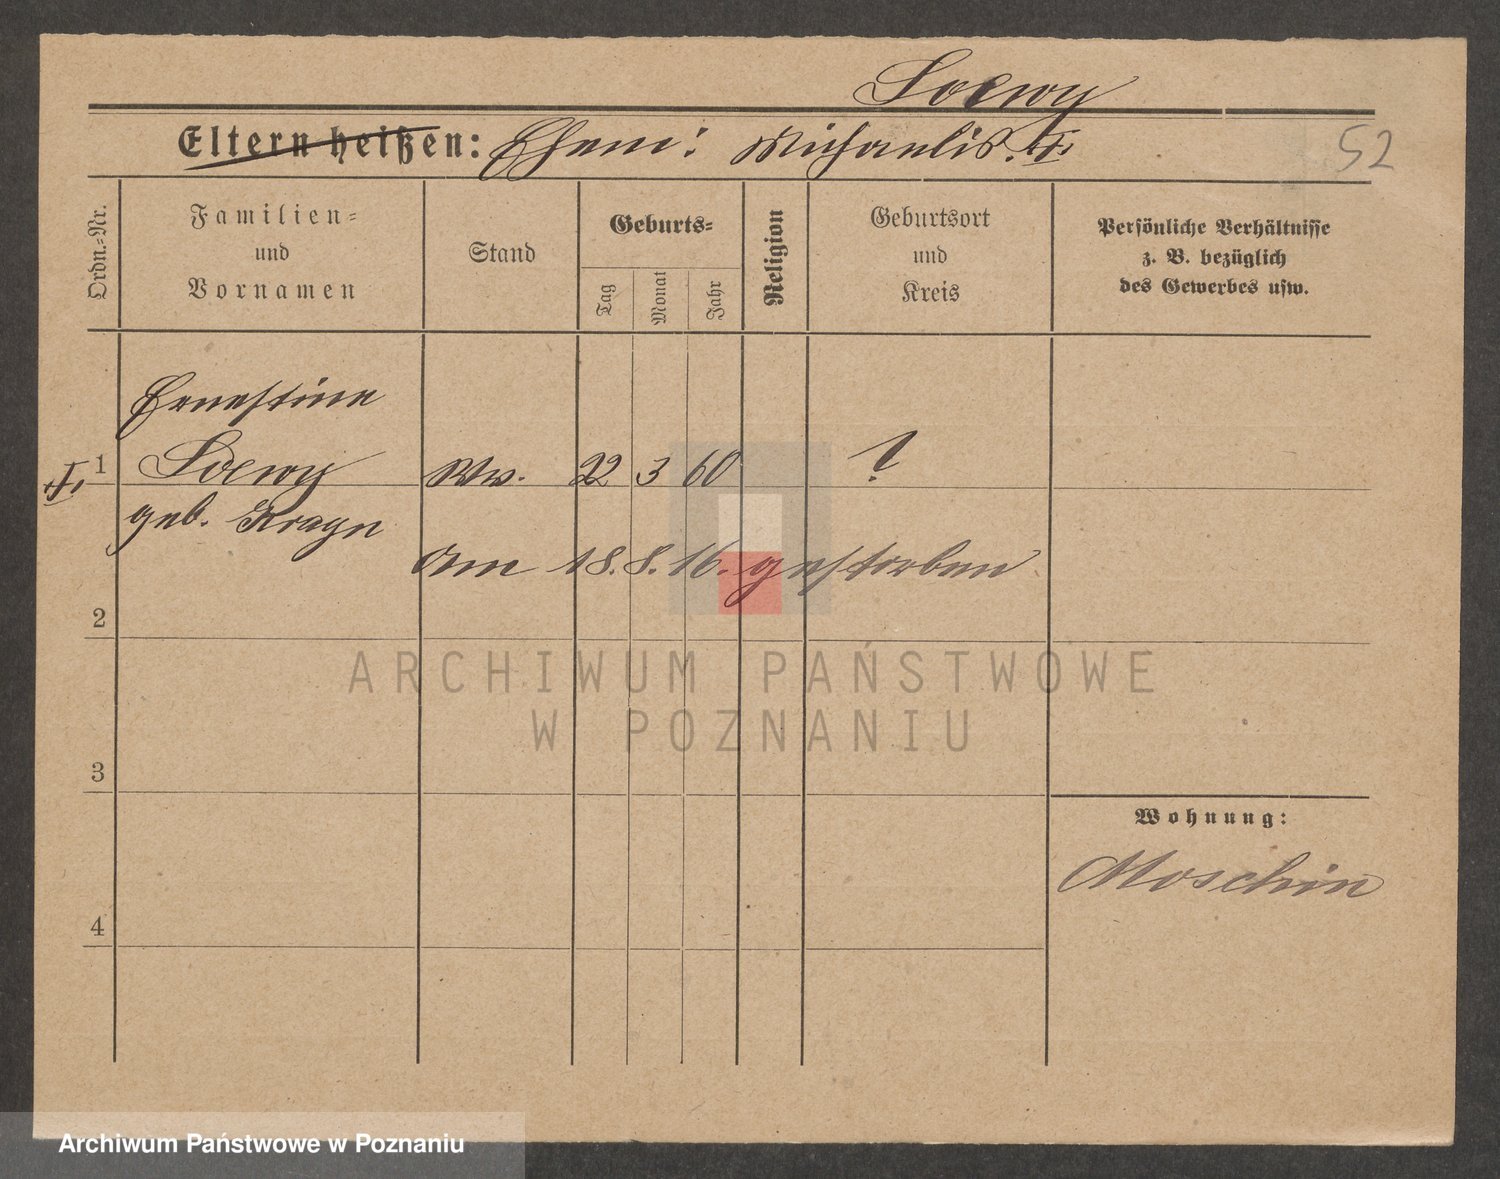 Loewy
Eltern heißen: Ehem: Michaelis. †.
52
Ordn.=Nr.
Familien=
und
Vornamen
Stand
Geburts=
Tag
Monat
Jahr
Religion
Geburtsort
und
Kreis
Persönliche Verhältnisse
z. B. bezüglich
des Gewerbes usw.
Ernestine
†. 1 Loewy Ww. 22 3 60 ?
geb. Krayn
Am 18.8.16. gestorben
2
ARCHIWUM PAŃSTWOWE
W POZNANIU
3
Wohnung:
Moschin
4
Archiwum Państwowe w Poznaniu